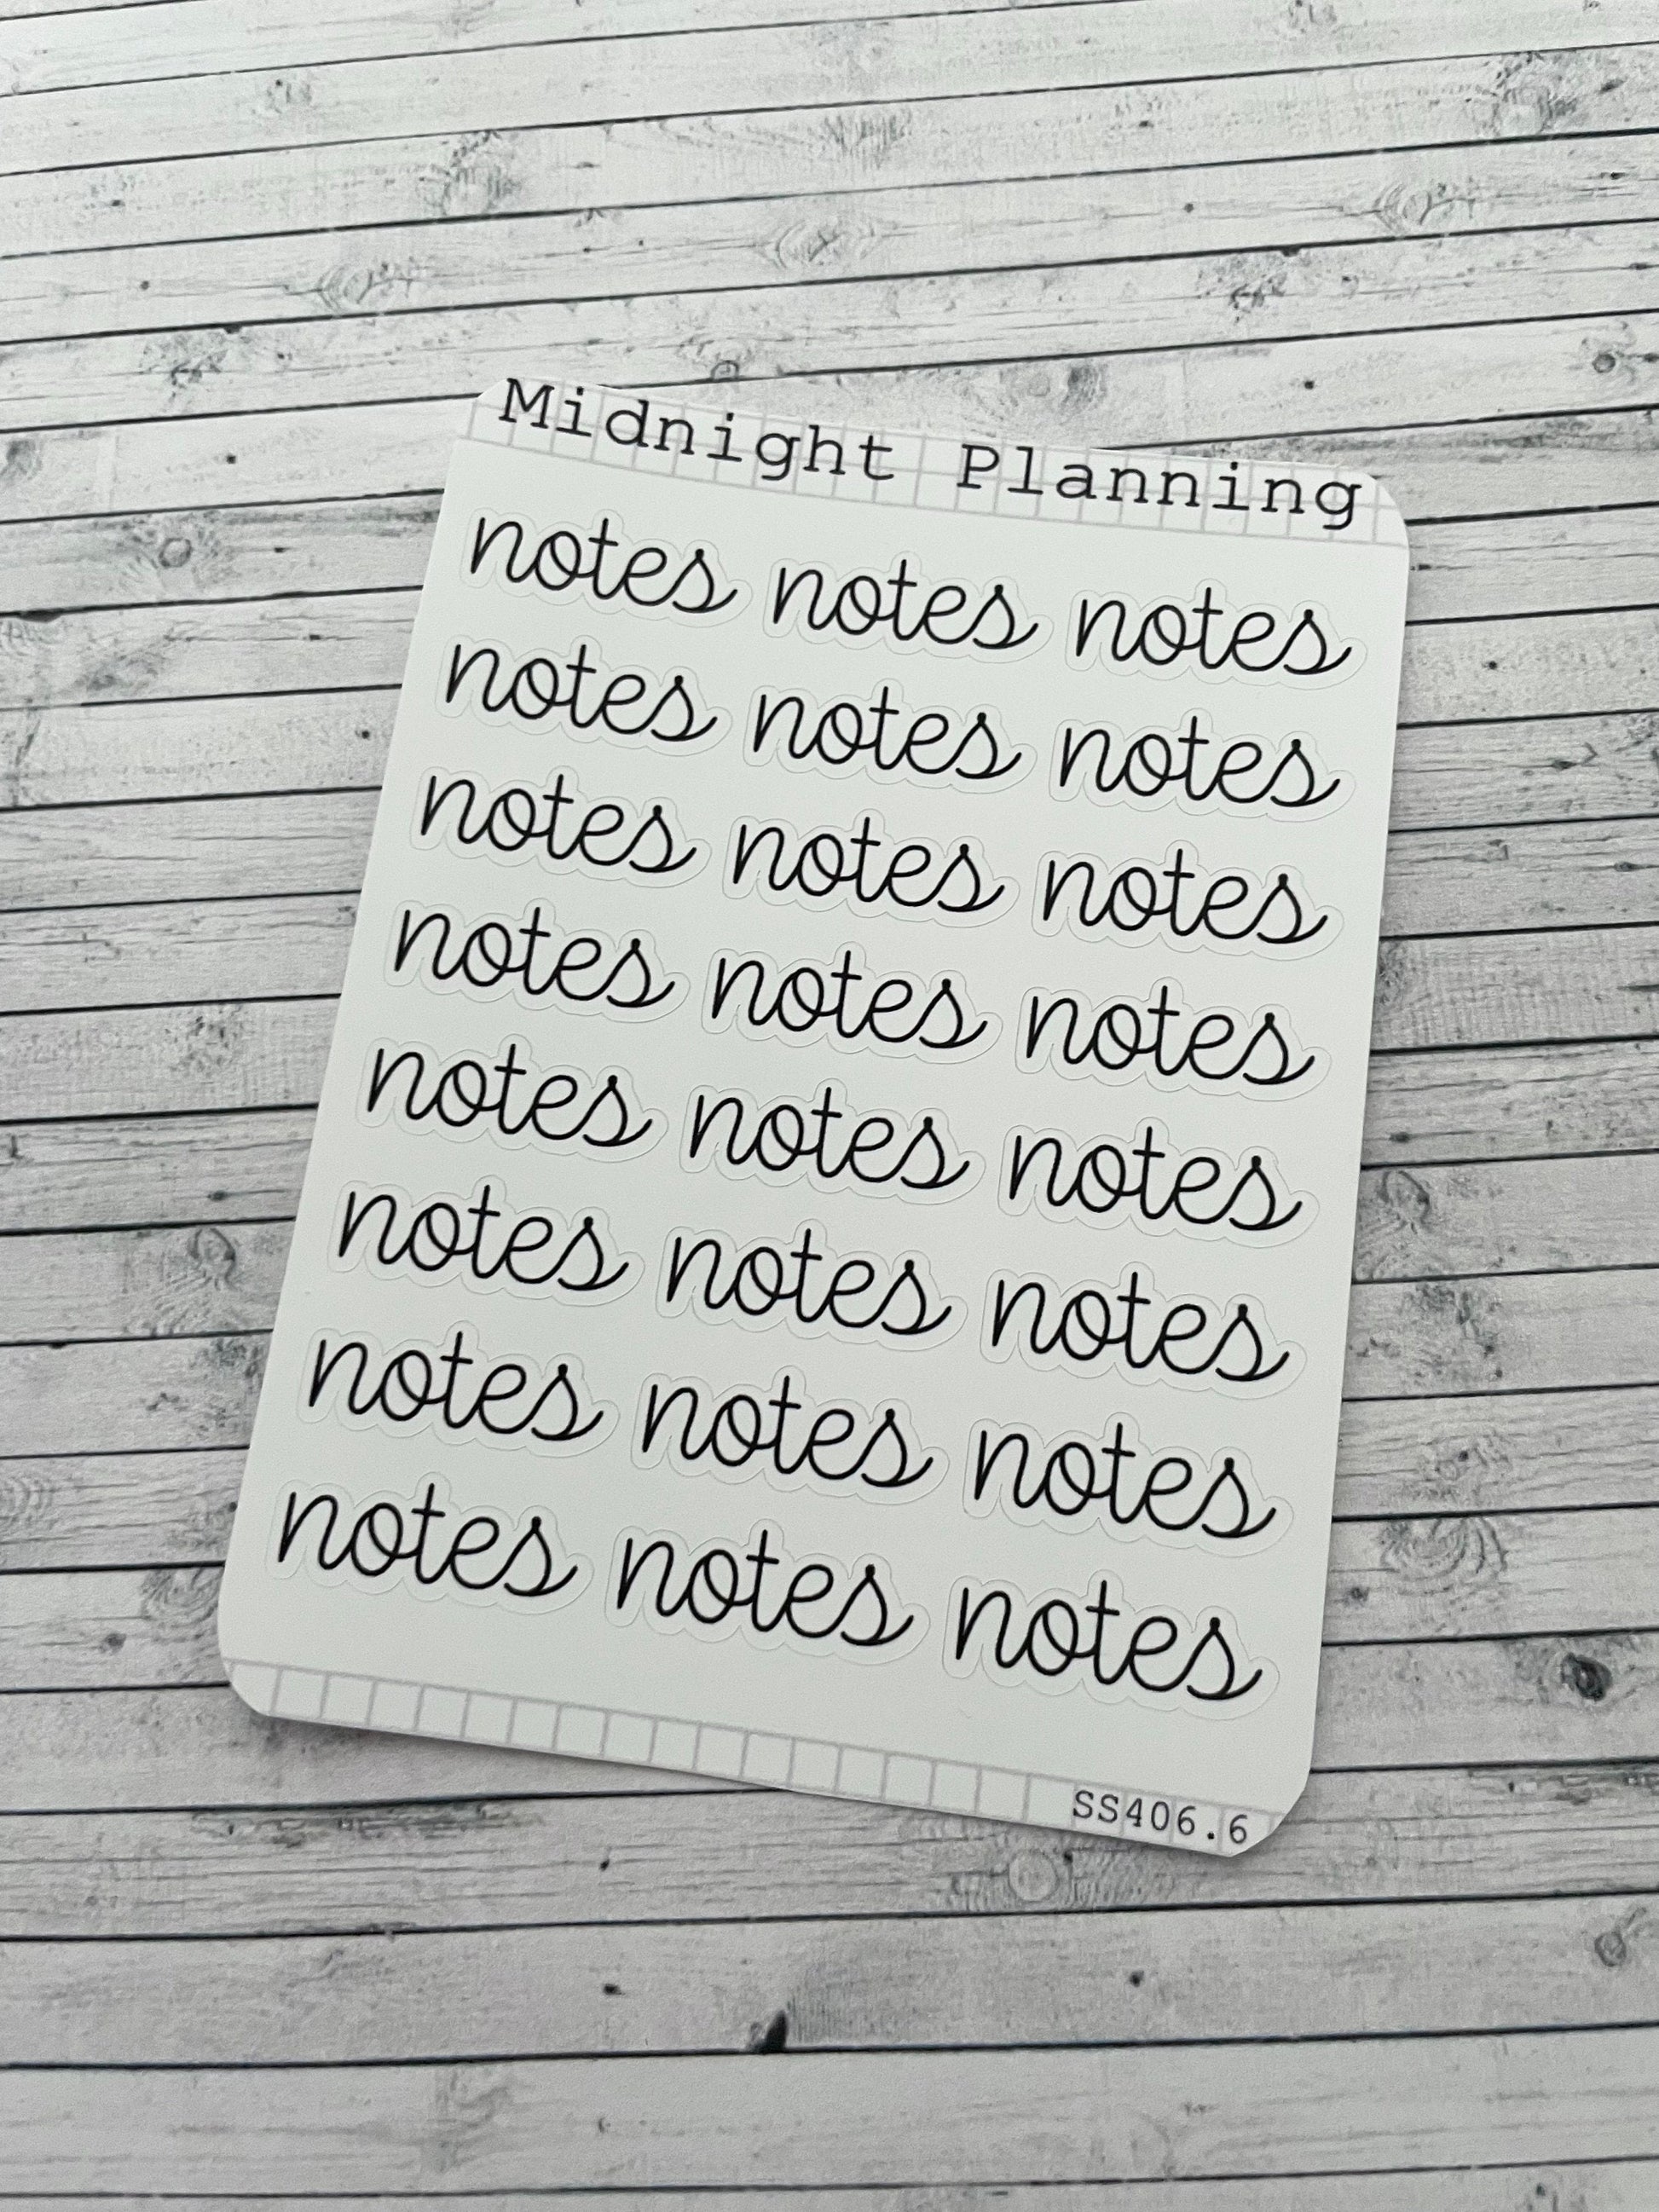 Midnight Planning
notes notes notes
notes notes notes
notes notes notes
notes notes notes
notes notes notes
notes notes notes
notes notes notes
notes notes notes
SS406.6